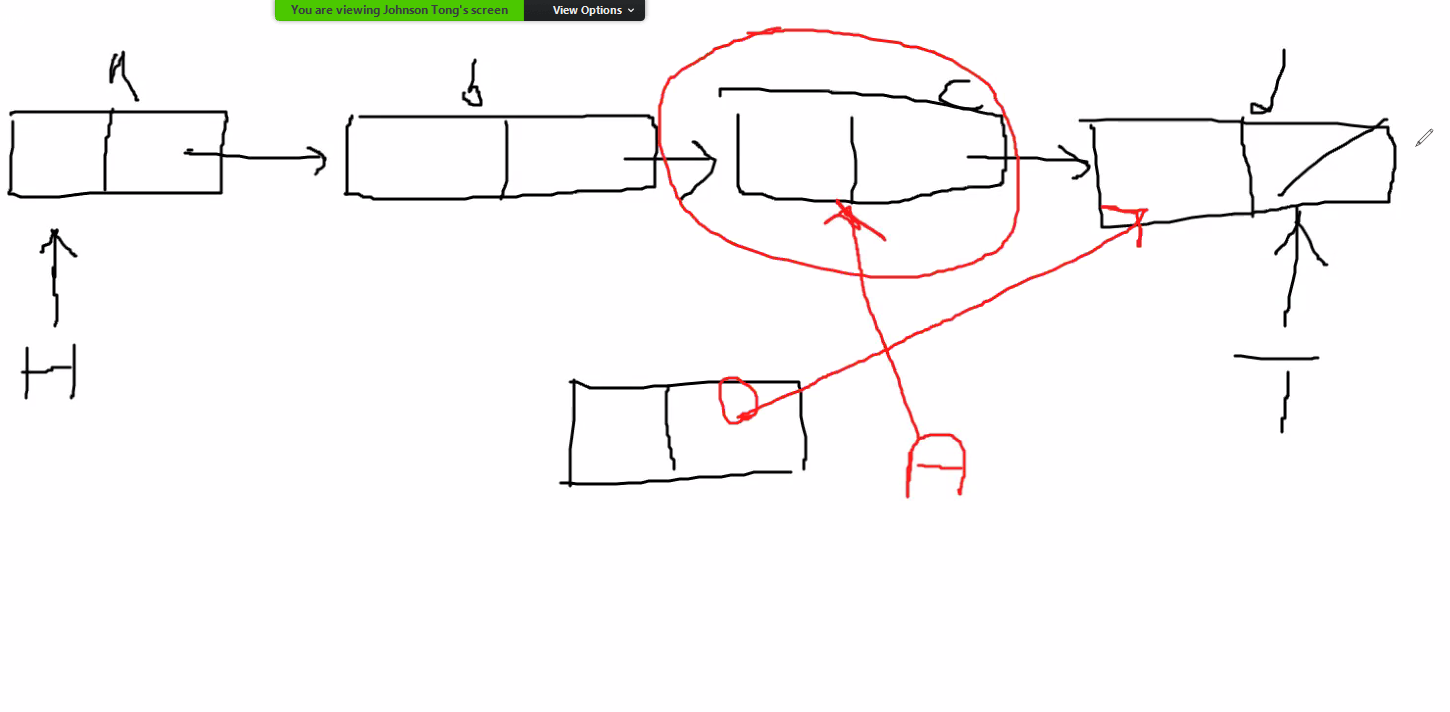 You are viewing Johnson Tong's screen View Options
A b C d
H T
A